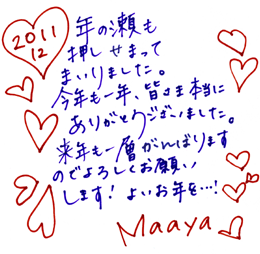 2011
12
年の瀬も
押しせまって
まいりました。
今年も一年、皆さま本当に
ありがとうございました。
来年も一層がんばります
のでよろしくお願い
します!よいお年を…!
Maaya